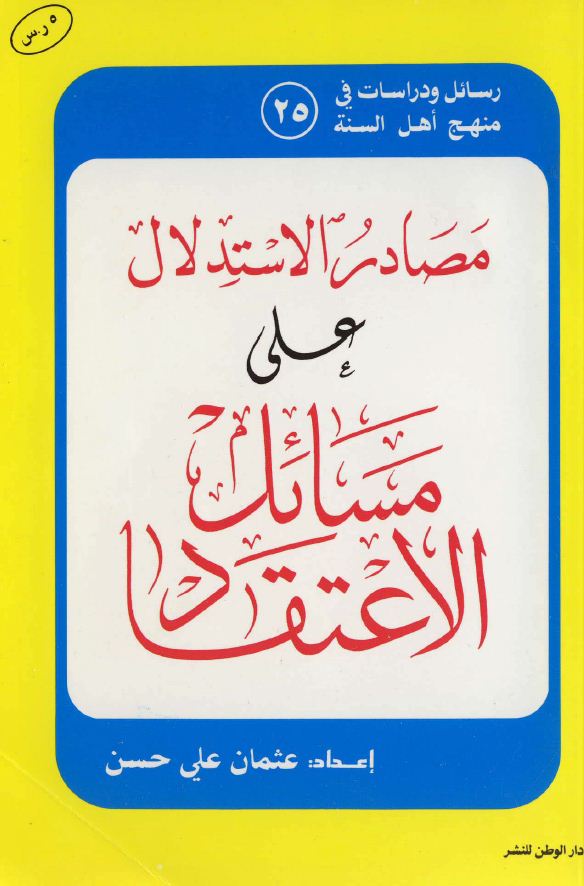 ٥ ر.س
رسائل ودراسات في
منهج أهل السنة
٢٥
مَصَادرُ الاسْتِدلال
على
مَسَائل
الاعْتقاد
إعداد: عثمان علي حسن
دار الوطن للنشر